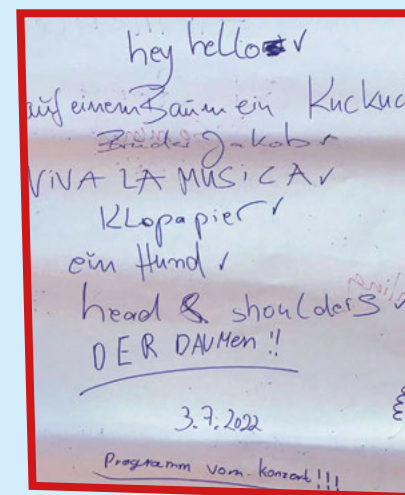 hey hello ✓
auf einem Baum ein Kuckuc
Bruder Jakob ✓
ViVA LA MUSiCA ✓
Klopapier ✓
ein Hund ✓
head & shoulders ✓
DER DAUMEN!!
3.7.2022
Programm vom Konzert!!!